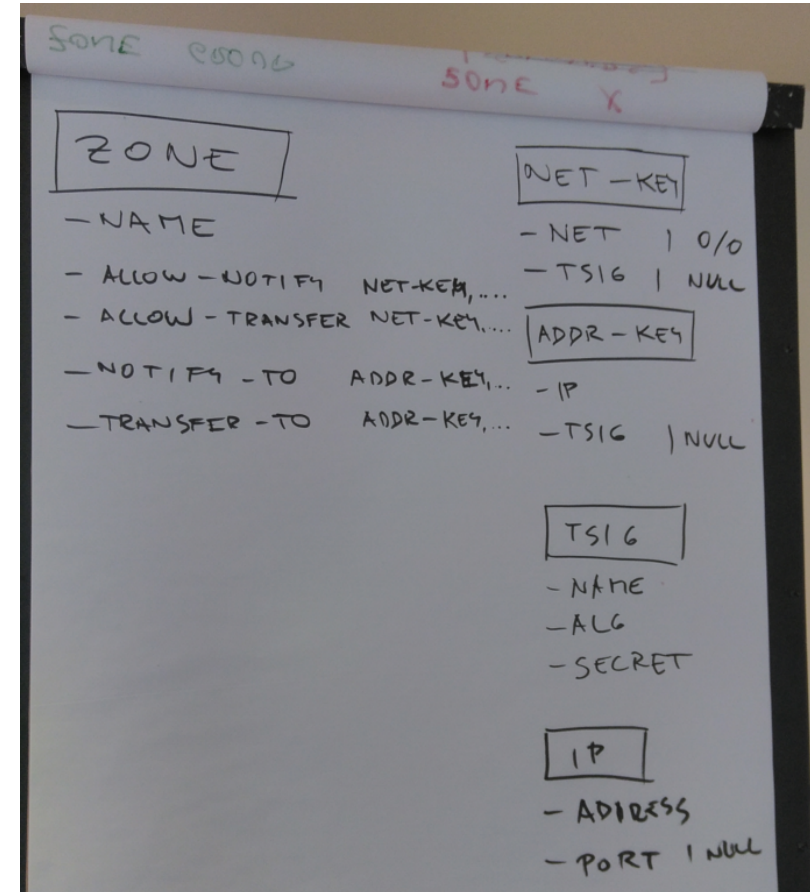 SOME
SOME X
ZONE
- NAME
- ALLOW-NOTIFY NET-KEY,....
- ALLOW-TRANSFER NET-KEY,....
- NOTIFY-TO ADDR-KEY,...
- TRANSFER-TO ADDR-KEY,...
NET-KEY
- NET | 0/0
- TSIG | NULL
ADDR-KEY
- IP
- TSIG | NULL
TSIG
- NAME
- ALG
- SECRET
IP
- ADDRESS
- PORT | NULL